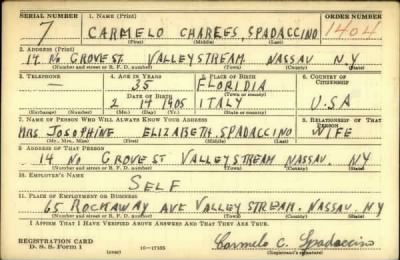 SERIAL NUMBER 1. NAME (Print) ORDER NUMBER
7 CARMELO CHARLES, SPADACCINO 1404
(First) (Middle) (Last)
2. ADDRESS (Print)
14 No GROVE ST VALLEY STREAM NASSAU N.Y
(Number and street or R. F. D. number) (Town) (County) (State)
3. TELEPHONE 4. AGE IN YEARS 5. PLACE OF BIRTH 6. COUNTRY OF CITIZENSHIP
— 35 FLORIDIA
(Town or county)
DATE OF BIRTH
2 14 1905 ITALY U.S.A
(Mo.) (Day) (Yr.) (State or country)
7. NAME OF PERSON WHO WILL ALWAYS KNOW YOUR ADDRESS 8. RELATIONSHIP OF THAT PERSON
MRS. JOSOPHINE ELIZABETH, SPADACCINO WIFE
(Mr., Mrs., Miss) (First) (Middle) (Last)
9. ADDRESS OF THAT PERSON
14 No GROVE ST VALLEY STREAM NASSAU. NY
(Number and street or R. F. D. number) (Town) (County) (State)
10. EMPLOYER'S NAME
SELF
11. PLACE OF EMPLOYMENT OR BUSINESS
65 ROCKAWAY AVE VALLEY STREAM. NASSAU. NY
(Number and street or R. F. D. number) (Town) (County) (State)
I AFFIRM THAT I HAVE VERIFIED ABOVE ANSWERS AND THAT THEY ARE TRUE.
REGISTRATION CARD
D. S. S. Form 1 (over) 16—17105 Carmelo C. Spadaccino
(Registrant's signature)